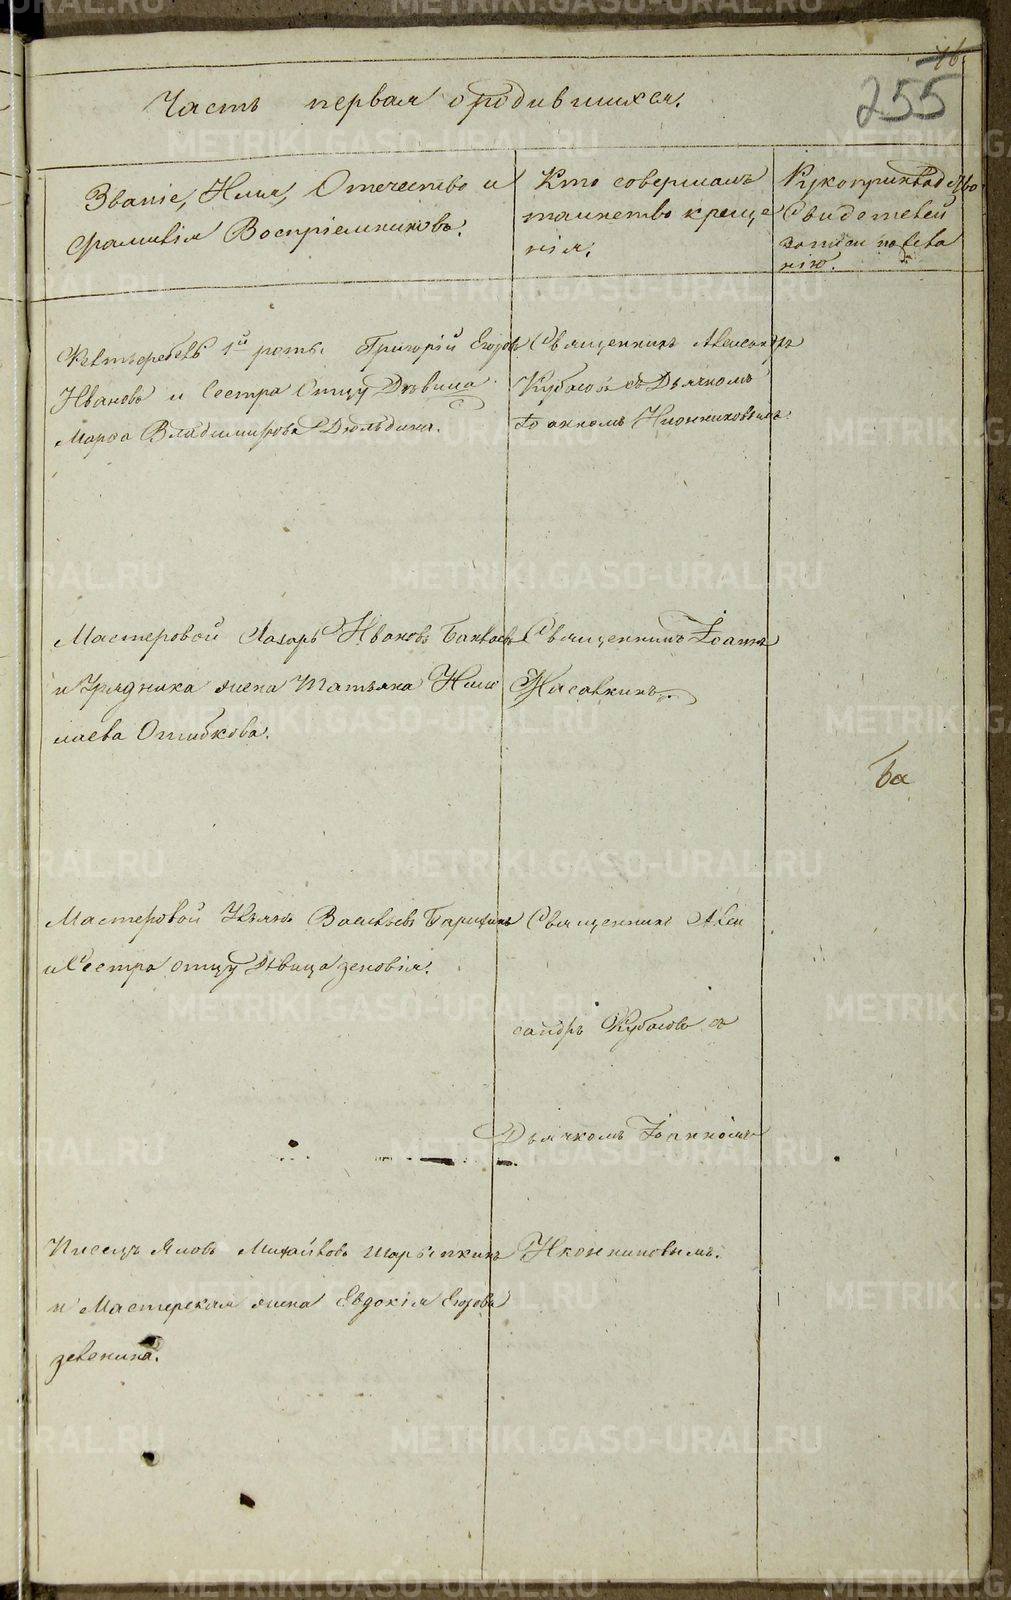 76.
255
Часть первая о родившихся.
Званіе, Имя, Отечество и
Фамилія Воспріемниковъ.
Кто совершалъ
таинство креще
нія.
Рукоприкладство
Свидетелей
записи по жела
нію.
Фельтфебель 1й роты Григорій Егоровъ
Ивановъ и Сестра Отцу Дѣвица
Марѳа Владимирова
Священникъ Александръ
Кубасовъ съ Дьячкомъ
Іоанномъ Иконниковымъ.
Мастеровой Лазарь Ивановъ
и Урядника жена Татьяна Нико
лаева Ошибкова.
Священникъ Іоаннъ
Мастеровой Васильевъ
и Сестра отцу Дѣвица Зеновія.
Священникъ Алек
сандръ Кубасовъ съ
Дьячкомъ Іоанномъ
Иконниковымъ.
Писецъ Яковъ Михайловъ
и Мастерская жена Евдокія Егорова
METRIKI.GASO-URAL.RU